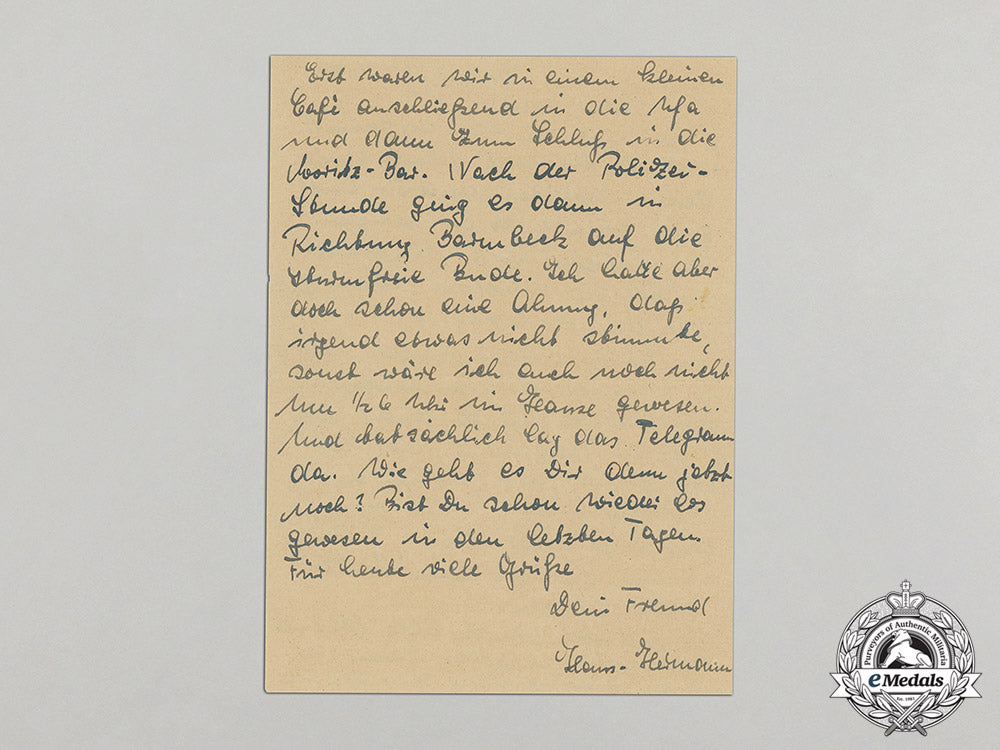 Erst waren wir in einem kleinen
Café anschließend in die Ufa
und dann zum Schluß in die
Moritz-Bar. Nach der Polizei-
Stunde ging es dann in
Richtung Barmbeck auf die
sturmfreie Bude. Ich hatte aber
doch schon eine Ahnung, daß
irgend etwas nicht stimmte,
sonst wäre ich auch noch nicht
um 1/2 6 Uhr im Hause gewesen.
Und tatsächlich lag das Telegramm
da. Wie geht es Dir denn jetzt
noch? Bist Du schon wieder los
gewesen in den letzten Tagen.
Für heute viele Grüße
Dein Freund
Hans-Hermann
Purveyors of Authentic Militaria
eMedals
Est. 1985